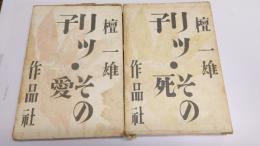 檀一雄
リツ子・その愛
作品社
檀一雄
リツ子・その死
作品社